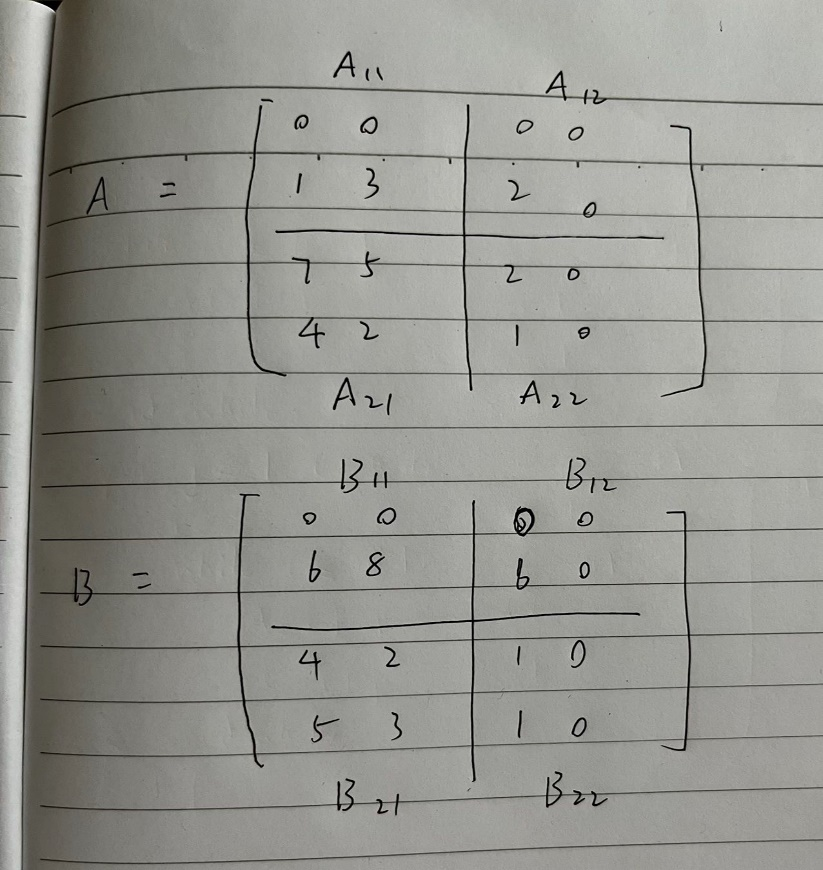 A11 A12
0 0 0 0
A = 1 3 2 0
7 5 2 0
4 2 1 0
A21 A22
B11 B12
0 0 0 0
B = 6 8 6 0
4 2 1 0
5 3 1 0
B21 B22